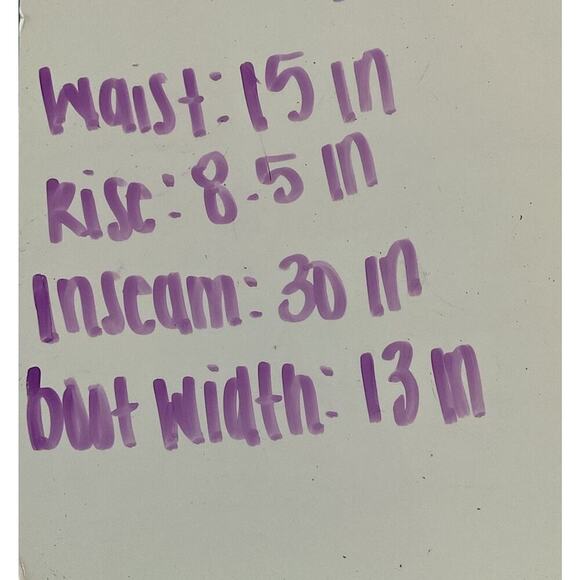 Waist: 15 in
Rise: 8.5 in
Inseam: 30 in
butt width: 13 in